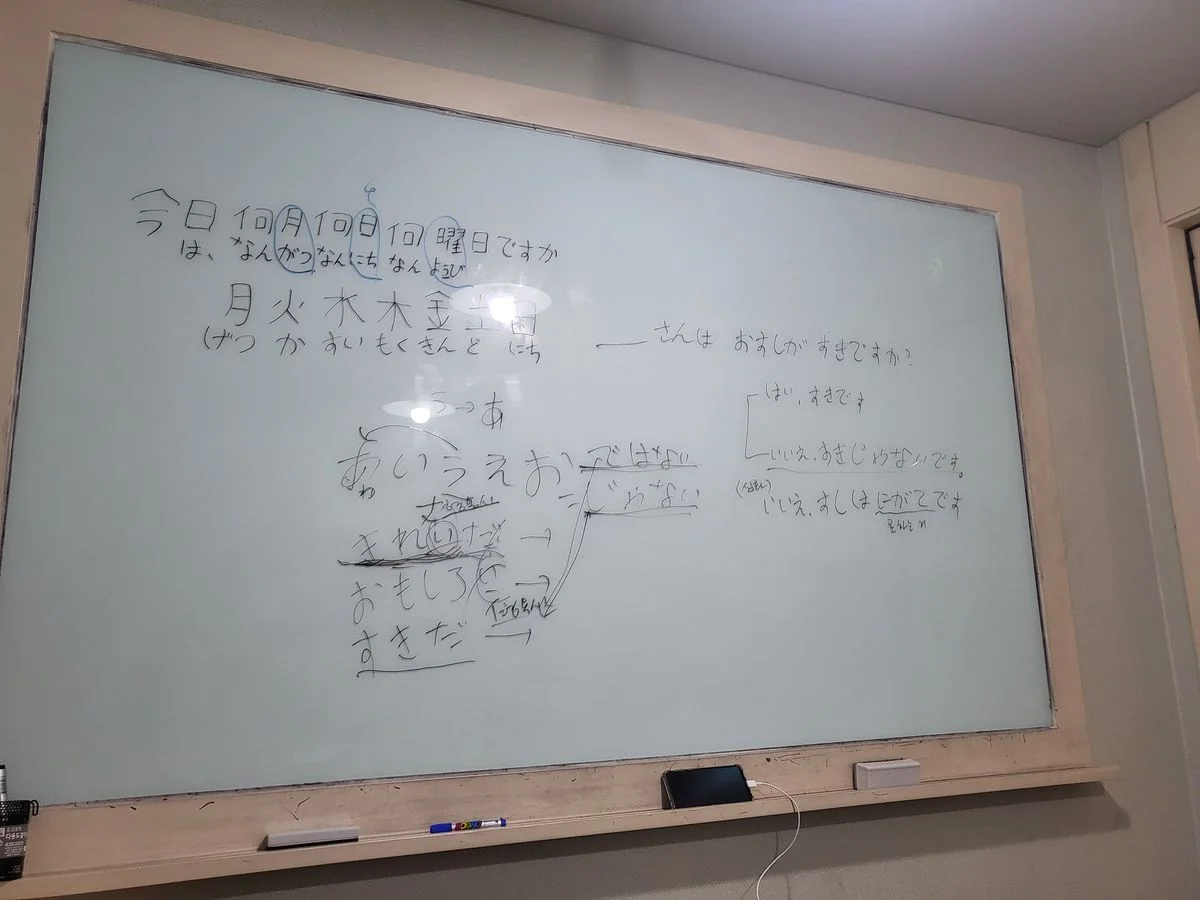 今日 何月何日何曜日ですか
は、なんがつなんにち なん ようび
月 火 水 木 金 土 日
げつ か すい もく きん ど にち
う→あ
あ い う え お
わ
ではない
じゃない
きれいだ →
おもしろい →
すきだ →
さんは おすしが すきですか?
はい、すきです
いいえ、すきじゃないです。
いいえ、すしは にがてです